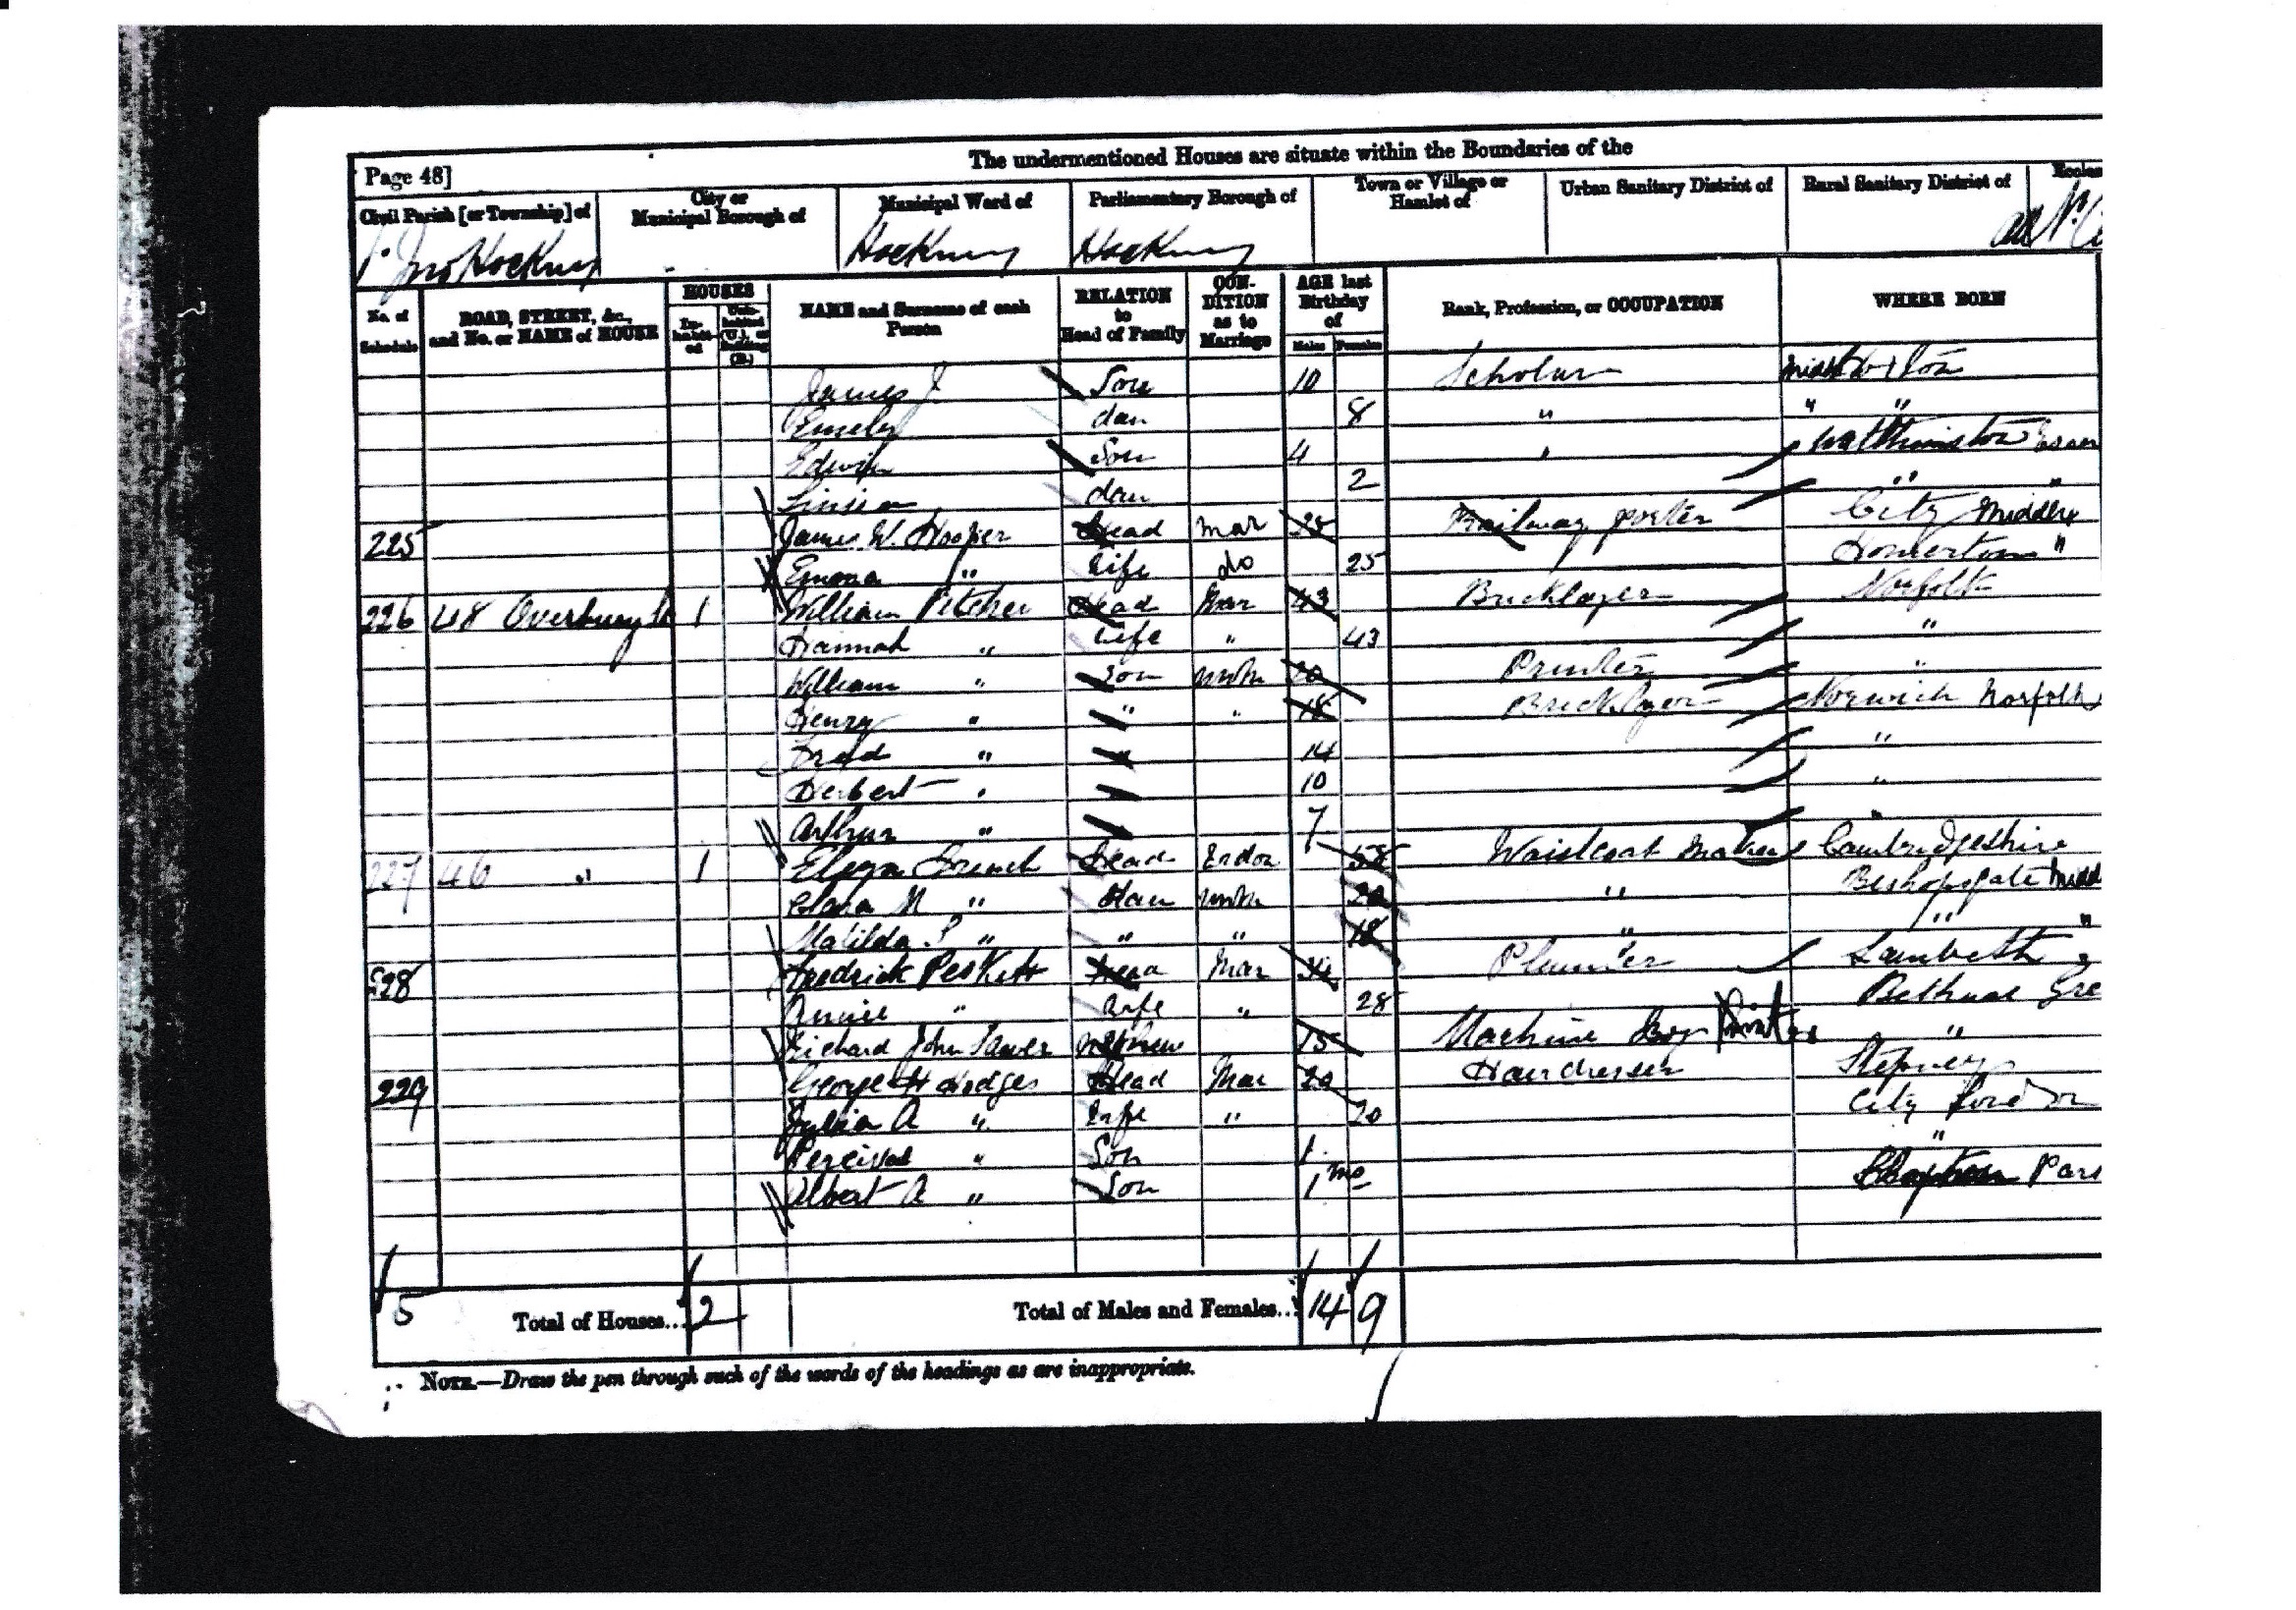 The undermentioned Houses are situate within the Boundaries of the
Page 48]
Civil Parish [or Township] of
City or Municipal Borough of
Municipal Ward of
Parliamentary Borough of
Town or Village or Hamlet of
Urban Sanitary District of
Rural Sanitary District of
Jno Hackney Hackney Hackney
No. of Schedule
ROAD, STREET, &c., and No. or NAME of HOUSE
HOUSES
In-habit-ed
Unin-habited (U.), or Building (B.)
NAME and Surname of each Person
RELATION to Head of Family
CON-DITION as to Marriage
AGE last Birthday of
Males Females
Rank, Profession, or OCCUPATION
WHERE BORN
James J Son 10 Scholar
Emely dau 8 " " "
Edwin Son 4 " Walthmstow Essex
dau 2 " "
225 James W. Hooper Head mar 28 Railway porter City Middlx
Emma " Wife do 25 Homerton "
226 48 Overbury St 1 William Pitcher Head Mar 43 Bricklayer Norfolk
Hannah " Wife " 43 "
William " Son unm 20 Printer "
Henry " " " 18 Bricklayer Norwich Norfolk
Fred " " 14 "
Herbert " " 10 "
Arthur " " 7 "
227 46 " 1 Eliza French Head 58 Waistcoat Maker Cambridgeshire
Clara M " dau unm 20 " Bishopsgate Midd
Matilda P " " " 18 " " "
228 Fredrick Peskett Head Mar 34 Plumber Lambeth
Annie " Wife " 28 Bethnal Gre
Richard John nephew 15 Machine Boy Printer "
229 George H Hodges Head Mar 20 Hairdresser Stepney
Julia A " Wife " 20 City London
Percival " Son 1 "
Albert A " Son 1 mo Clapton Park
5 Total of Houses... 2 Total of Males and Females... 14 9
NOTE.—Draw the pen through such of the words of the headings as are inappropriate.